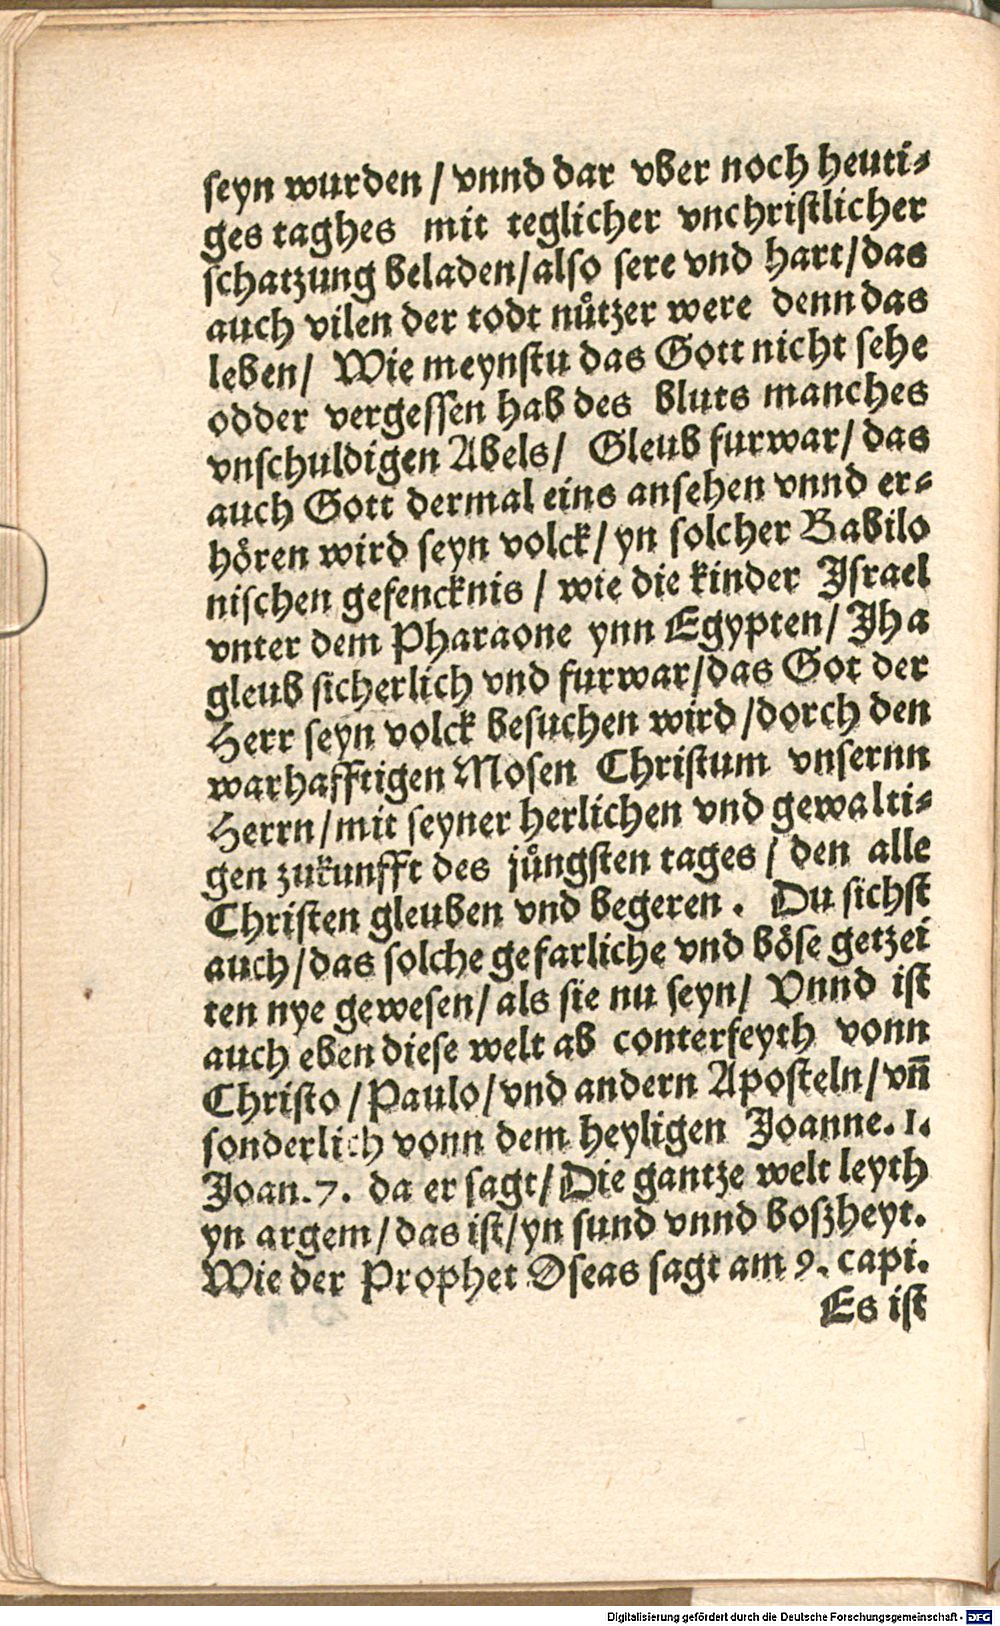 seyn wurden / vnnd dar vber noch heuti⸗
ges taghes mit teglicher vnchristlicher
schatzung beladen/also sere vnd hart/das
auch vilen der todt nuͤtzer were denn das
leben/ Wie meynstu das Gott nicht sehe
odder vergessen hab des bluts manches
vnschuldigen Abels/ Gleub furwar/ das
auch Gott dermal eins ansehen vnnd er⸗
hoͤren wird seyn volck/ yn solcher Babilo
nischen gefencknis / wie die kinder Israel
vnter dem Pharaone ynn Egypten/ Jha
gleub sicherlich vnd furwar/das Got der
Herr seyn volck besuchen wird /dorch den
warhafftigen Mosen Christum vnsernn
Herrn/mit seyner herlichen vnd gewalti⸗
gen zukunfft des juͤngsten tages / den alle
Christen gleuben vnd begeren . Du sichst
auch/das solche gefarliche vnd boͤse getzei
ten nye gewesen/ als sie nu seyn/ Vnnd ist
auch eben diese welt ab conterfeyth vonn
Christo /Paulo/vnd andern Aposteln/vn̄
sonderlich vonn dem heyligen Joanne. 1.
Joan.7. da er sagt/Die gantze welt leyth
yn argem/das ist/yn sund vnnd boßheyt.
Wie der Prophet Oseas sagt am 9. capi.
Es ist
Digitalisierung gefördert durch die Deutsche Forschungsgemeinschaft - DFG